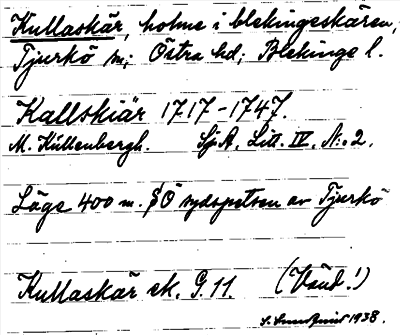 Kullaskär, holme i blekingeskären,
Tjurkö sn; Östra hd; Blekinge l.
Kallskiär 1717-1747.
M. Küllenbergh. Sj.A. Litt. IV. N:o 2.
Läge 400 m. SÖ sydspetsen av Tjurkö
Kullaskär ek. G. 11. (Vänd!)
1938.